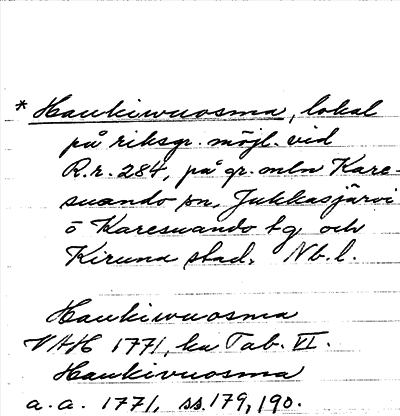 * Haukiwuosma, lokal
på riksgr. möjl. vid
R.r. 284, på gr. mln Kare-
suando sn, Jukkasjärvi
o Karesuando tg och
Kiruna stad. Nb.l.
Haukiwuosma
VAH 1771, ka Tab. VI.
Haukivuosma
a. a. 1771, ss. 179, 190.